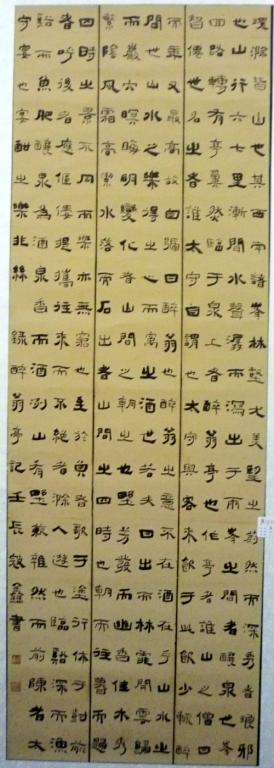 環滁皆山也其西南諸峰林壑尤美望之蔚然而深秀者琅邪
也山行六七里漸聞水聲潺潺而瀉出于兩峰之間者釀泉也峰
回路轉有亭翼然臨于泉上者醉翁亭也作亭者誰山之僧
智僊也名之者誰太守自謂也太守與客來飲于此飲少輒醉
而年又最高故自號曰醉翁也醉翁之意不在酒在乎山水之
間也山水之樂得之心而寓之酒也若夫日出而林霏開雲歸
而巖穴暝晦明變化者山間之朝暮也野芳發而幽香佳木秀而
繁陰風霜高潔水落而石出者山間之四時也朝而往暮而歸
四時之景不同而樂亦無窮也至於負者歌于塗行者休于樹前
者呼後者應傴僂提攜往來而不絕者滁人遊也臨谿深而漁
谿而魚肥釀泉為酒泉香而酒洌山肴野蔌雜然而前陳者太
守宴也宴酣之樂非絲 錄醉翁亭記壬辰歲鑫書